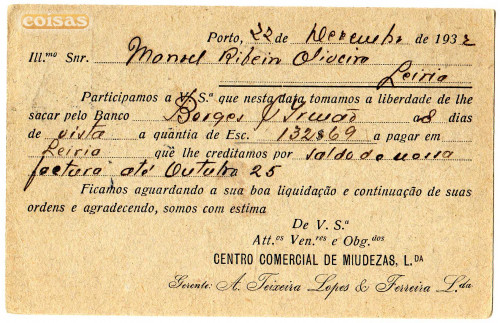 coisas
Porto, 22 de Dezembro de 1932
Ill.mo Snr. Manoel Ribeiro Oliveira
Leiria
Participamos a V. S.ª que nesta data tomamos a liberdade de lhe
sacar pelo Banco Borges & Irmão a 8 dias
de vista a quàntia de Esc. 132$69 a pagar em
Leiria que lhe creditamos por saldo de nossa
factura até Outubro 25
Ficamos aguardando a sua boa liquidação e continuação de suas
ordens e agradecendo, somos com estima
De V. S.ª
Att.os Ven.res e Obg.dos
CENTRO COMERCIAL DE MIUDEZAS, L.DA
Gerente: A. Teixeira Lopes & Ferreira L.da